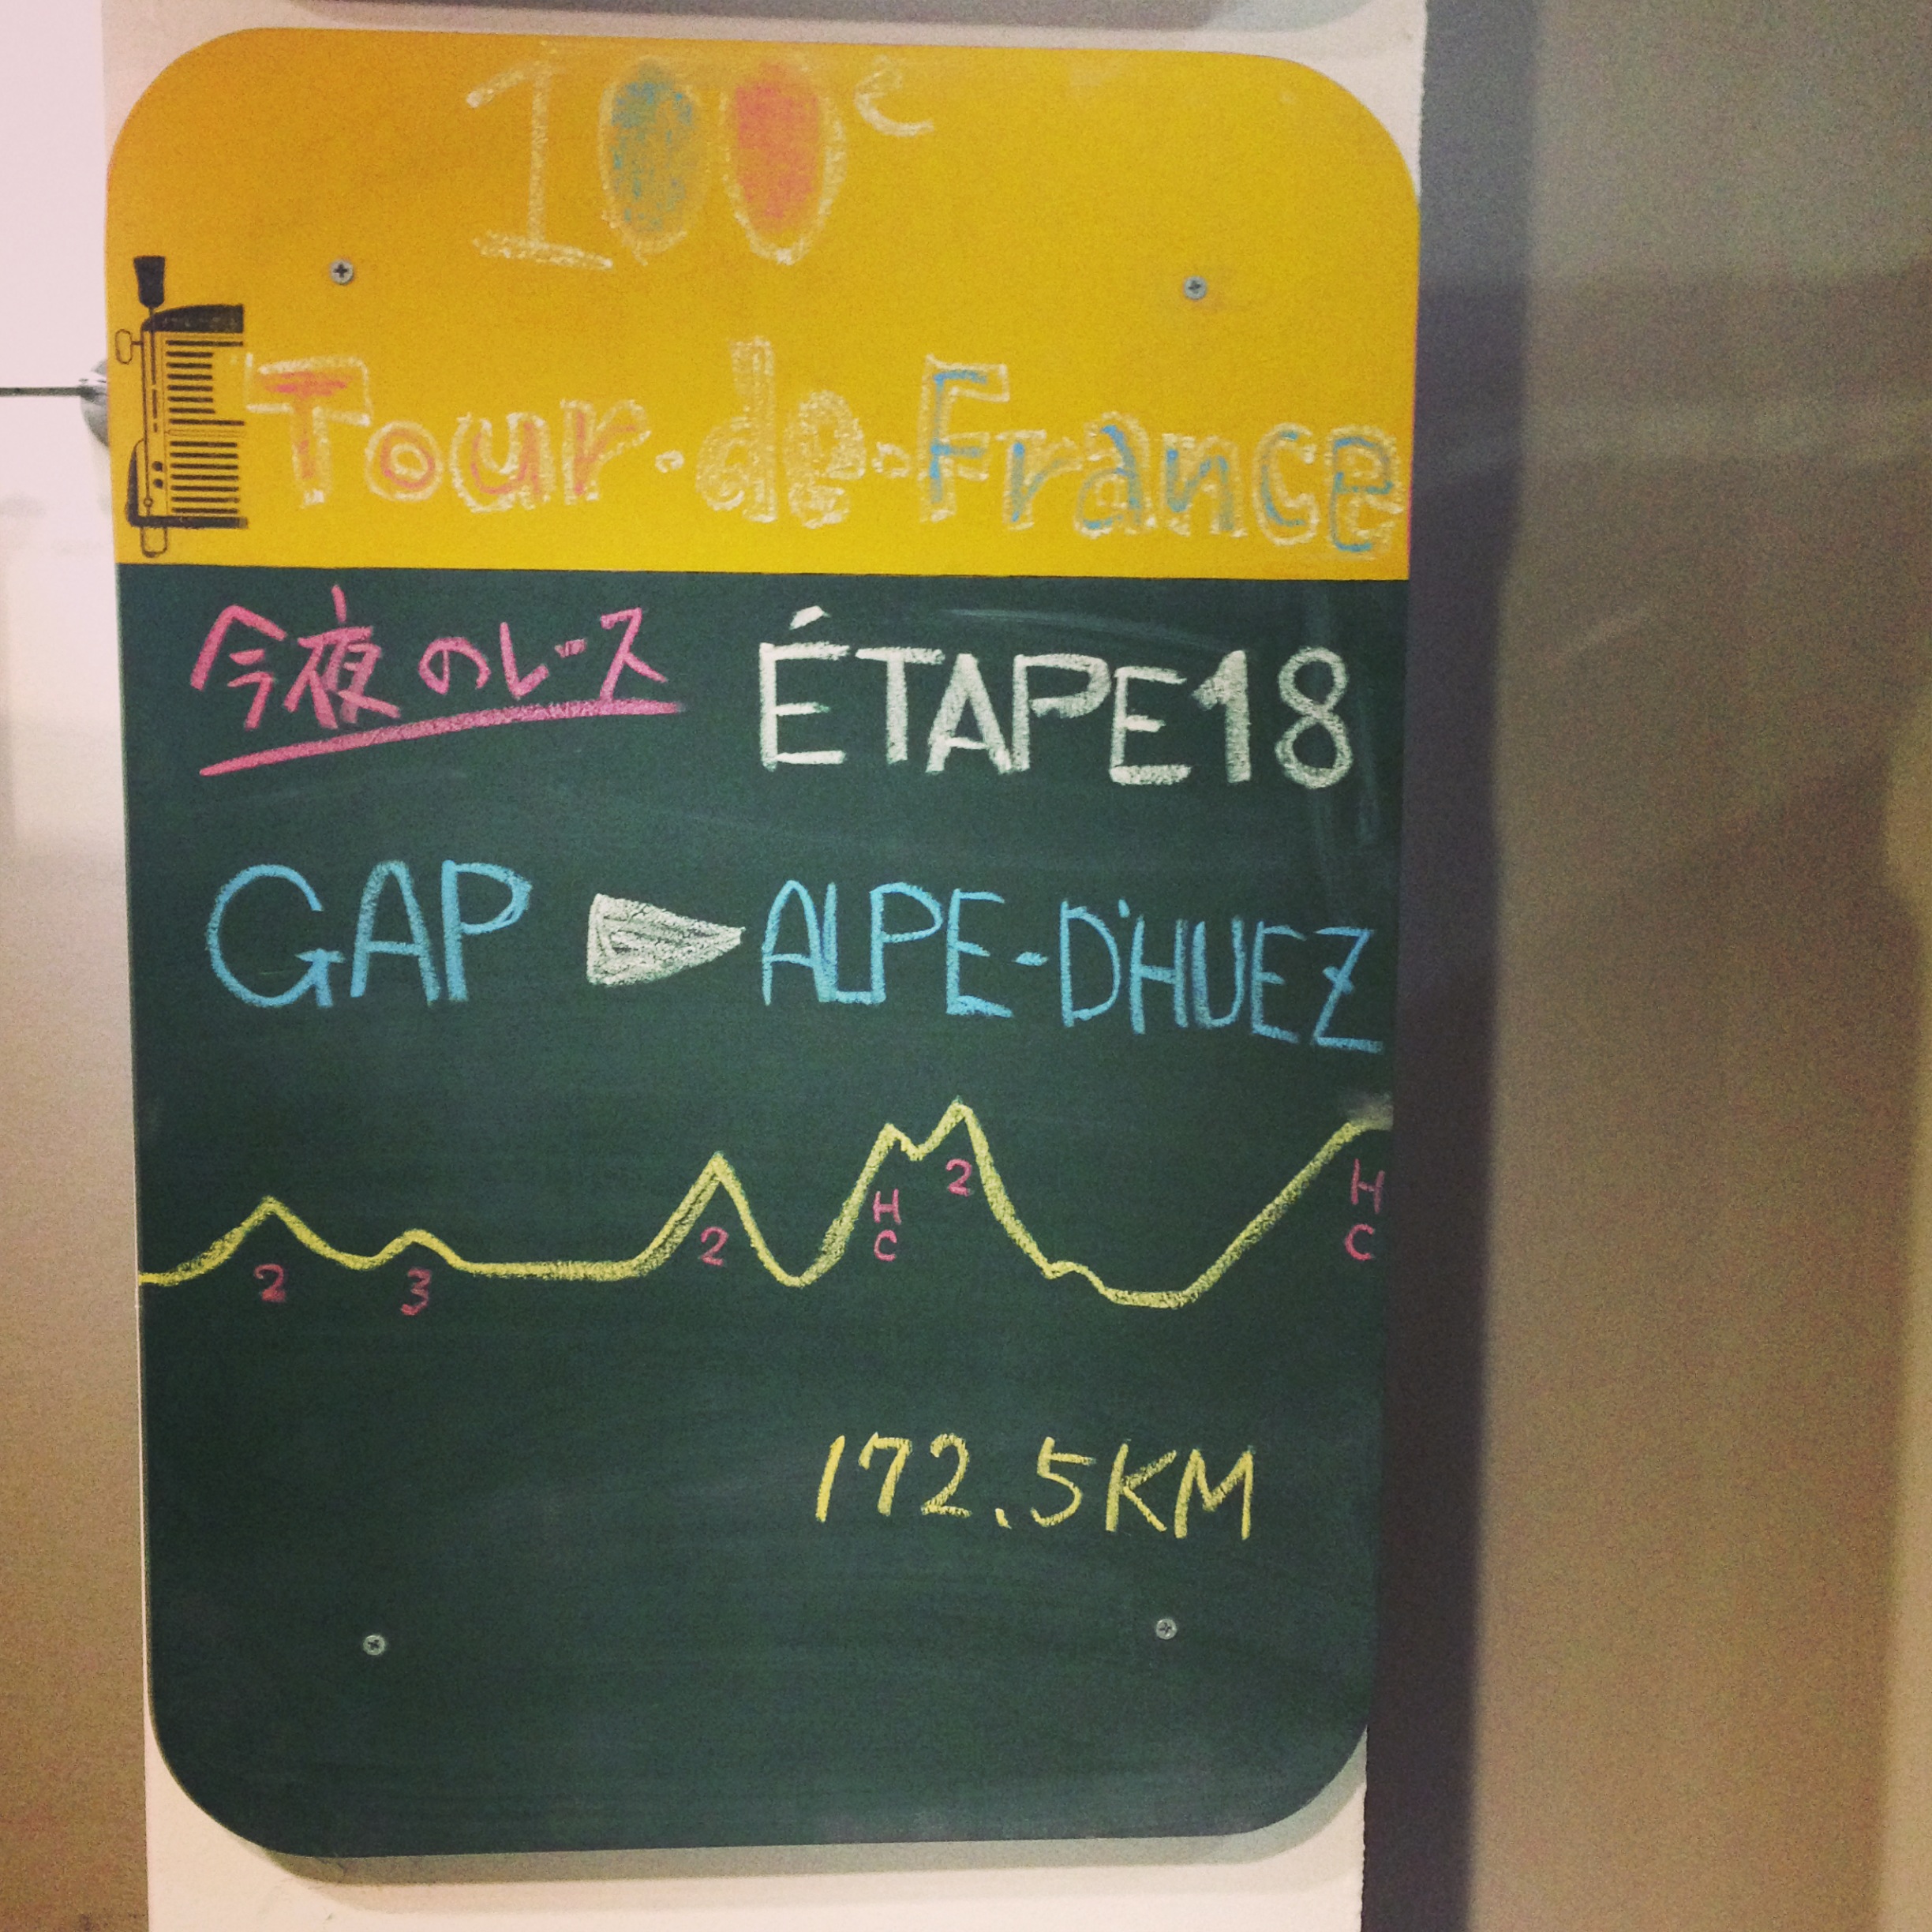 100e
Tour-de-France
今夜のレース ÉTAPE18
GAP ALPE-D'HUEZ
2 3 2 HC 2 HC
172.5KM